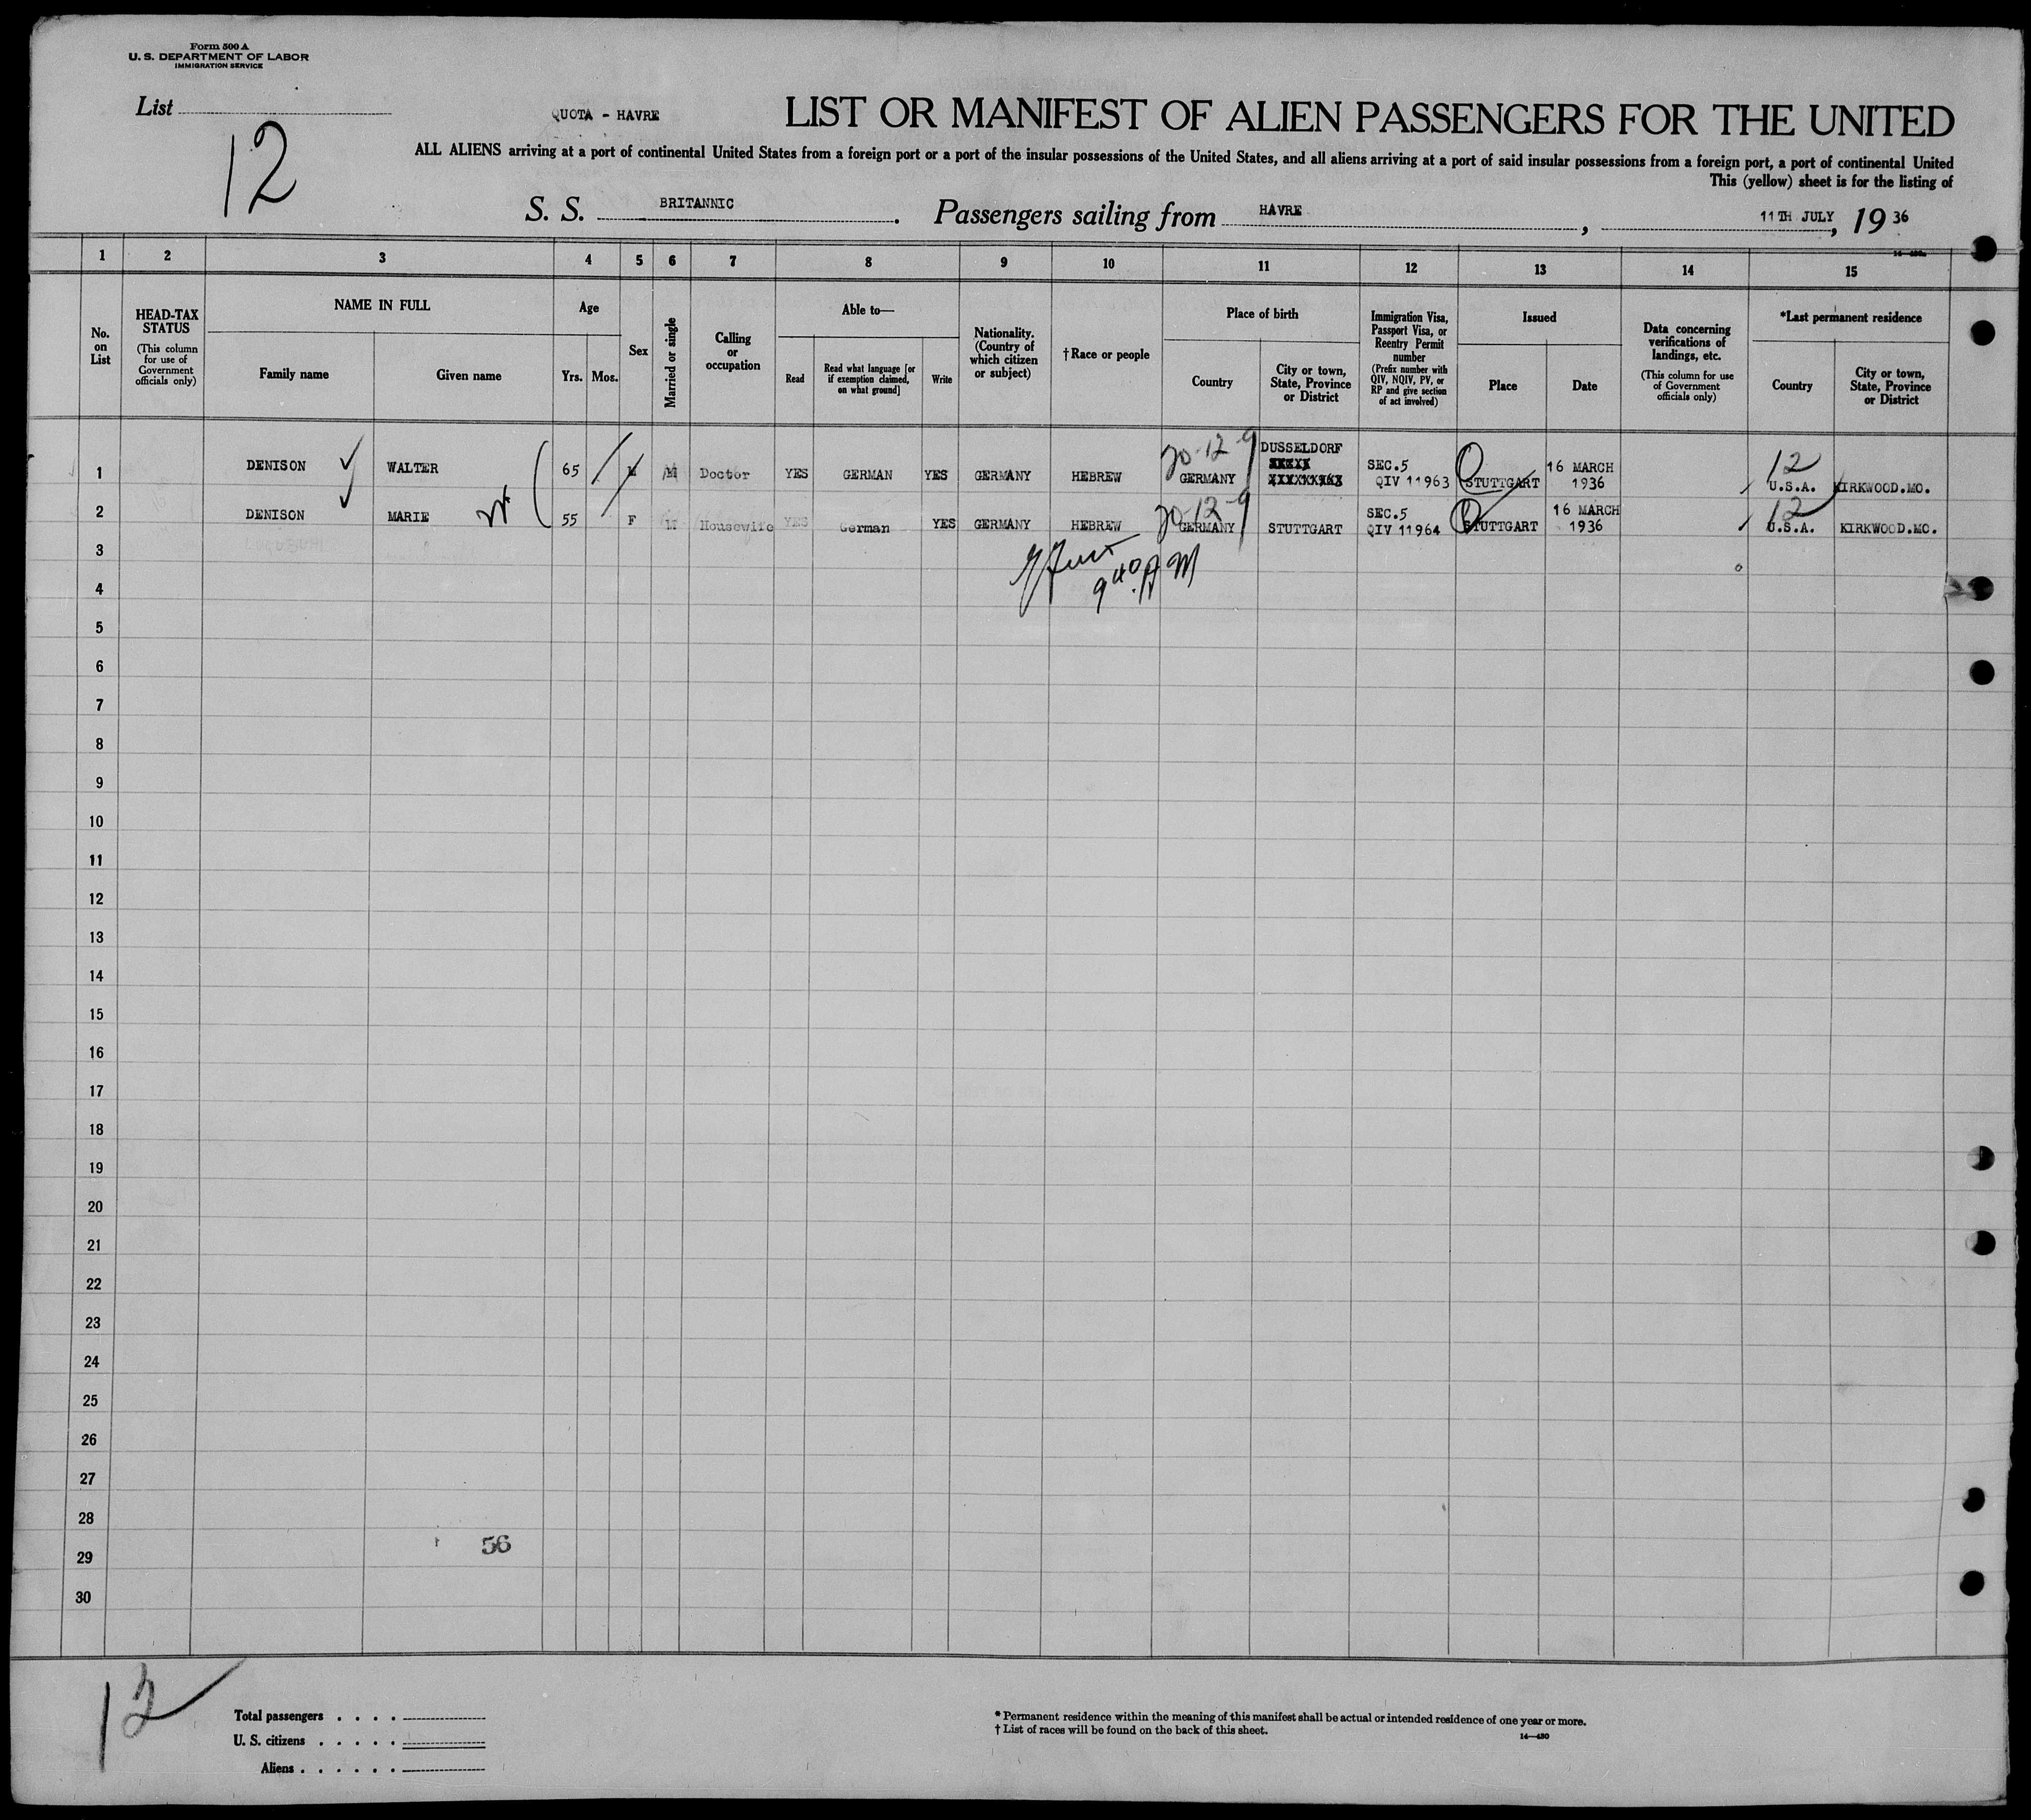 Form 500 A
U. S. DEPARTMENT OF LABOR
IMMIGRATION SERVICE
List
12
QUOTA - HAVRE
LIST OR MANIFEST OF ALIEN PASSENGERS FOR THE UNITED
ALL ALIENS arriving at a port of continental United States from a foreign port or a port of the insular possessions of the United States, and all aliens arriving at a port of said insular possessions from a foreign port, a port of continental United
This (yellow) sheet is for the listing of
S. S. BRITANNIC. Passengers sailing from HAVRE, 11TH JULY, 19 36
1 2 3 4 5 6 7 8 9 10 11 12 13 14 15
No. on List
HEAD-TAX STATUS
(This column for use of Government officials only)
NAME IN FULL
Family name
Given name
Age
Yrs.
Mos.
Sex
Married or single
Calling or occupation
Able to—
Read
Read what language [or if exemption claimed, on what ground]
Write
Nationality. (Country of which citizen or subject)
†Race or people
Place of birth
Country
City or town, State, Province or District
Immigration Visa, Passport Visa, or Reentry Permit number
(Prefix number with QIV, NQIV, PV, or RP and give section of act involved)
Issued
Place
Date
Data concerning verifications of landings, etc.
(This column for use of Government officials only)
*Last permanent residence
Country
City or town, State, Province or District
1 DENISON WALTER 65 M M Doctor YES GERMAN YES GERMANY HEBREW GERMANY DUSSELDORF SEC.5 QIV 11963 STUTTGART 16 MARCH 1936 12 U.S.A. KIRKWOOD.MO.
2 DENISON MARIE 55 F M Housewife YES German YES GERMANY HEBREW GERMANY STUTTGART SEC.5 QIV 11964 STUTTGART 16 MARCH 1936 12 U.S.A. KIRKWOOD.MO.
3
9 40 A M
4
5
6
7
8
9
10
11
12
13
14
15
16
17
18
19
20
21
22
23
24
25
26
27
28
56
29
30
12
Total passengers . . . .
U. S. citizens . . . . .
Aliens . . . . . .
* Permanent residence within the meaning of this manifest shall be actual or intended residence of one year or more.
† List of races will be found on the back of this sheet.
14—430